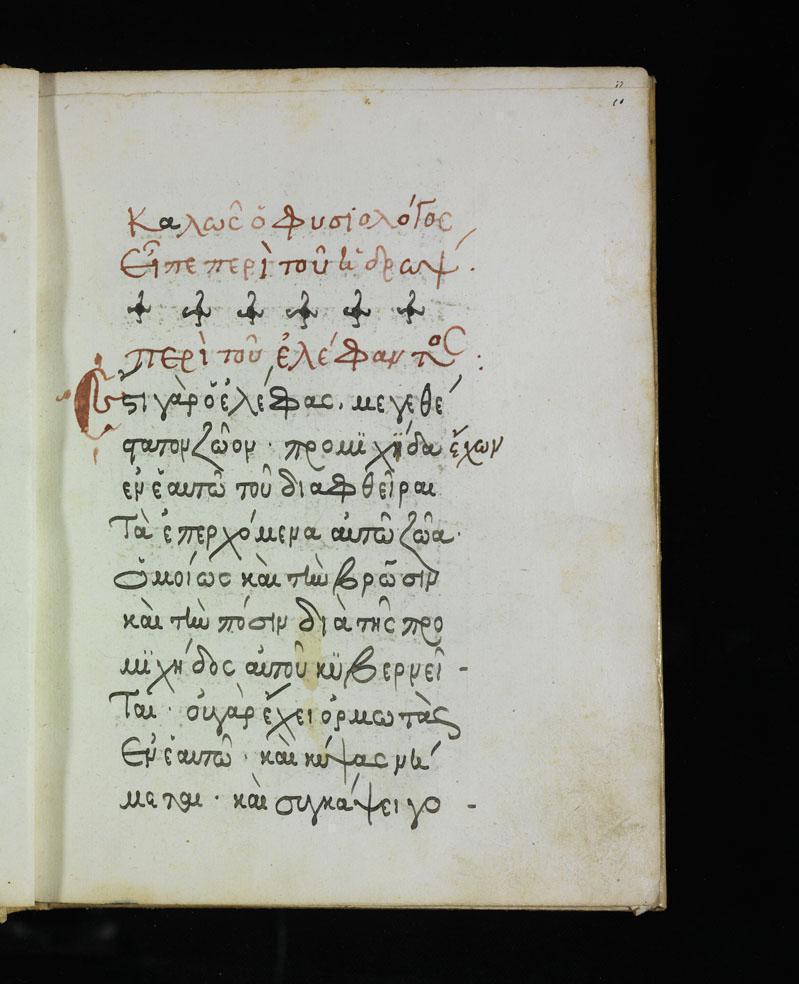 Καλῶς ὁ φυσιολόγος
Εἶπε περὶ τοῦ ὕδρωψ.
περὶ τοῦ ἐλέφαντος:
Ἔστι γὰρ ὁ ἐλέφας, μεγεθέ
στατον ζῶον · προμϊχῇδα ἔχων
ἐν ἑαυτῶ τοῦ διαφθεῖραι
Τὰ ἐπερχόμενα αὐτῶ ζῶα·
Ὁμοίως καὶ τὴν βρῶσιν
καὶ τὴν πόσιν διὰ τῆς προ
μϊχήδος αὐτοῦ κϋβερνεῖ -
Ται · οὐ γὰρ ἔχει ὁρμωτὰς
Ἐν ἑαυτῶ · καὶ κύψας
καὶ συγκάψει γο -